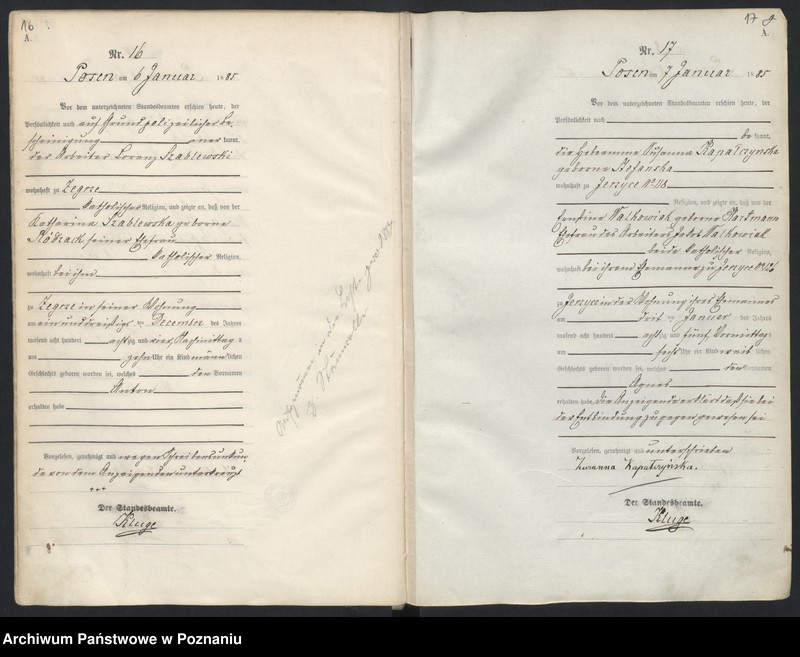 16
A.
Nr. 16
Posen am 6 Januar 1885
Vor dem unterzeichneten Standesbeamten erschien heute, der
Persönlichkeit nach auf Grund polizeilicher Be-
scheinigung kannt,
der Arbeiter Lorenz Szablewski
wohnhaft zu Zegrze
katholischer Religion, und zeigte an, daß von der
Katharina Szablewska geborne
seiner Ehefrau
katholischer Religion,
wohnhaft bei ihm
zu Zegrze in seiner Wohnung
am ein und dreißigsten December des Jahres
tausend acht hundert achtzig und vier Nachmittags
um zehn Uhr ein Kind männlichen
Geschlechts geboren worden sei, welches den Vornamen
Anton
erhalten habe
Vorgelesen, genehmigt und wegen Schreibensunkun-
de von dem Anzeigenden unterkreuzt
+++
Der Standesbeamte.
Kluge
17
A.
Nr. 17
Posen am 7 Januar 1885
Vor dem unterzeichneten Standesbeamten erschien heute, der
Persönlichkeit nach
be kannt,
die Hebeamme Susanna Kapalczynska
geborne Stefanska
wohnhaft zu Jerzyce No 118
Religion, und zeigte an, daß von der
Walkowiak geborne Hartmann
Ehefrau des Arbeiters Jakob Walkowiak
beide katholischer Religion,
wohnhaft bei ihrem Ehemanne zu Jerzyce
zu Jerzyce in der Wohnung ihres Ehemannes
am Januar des Jahres
tausend acht hundert achtzig und fünf Vormittags
um sechs Uhr ein Kind weiblichen
Geschlechts geboren worden sei, welches den Vornamen
Agnes
erhalten habe, die Anzeigende erklärt daß sie bei
der Entbindung zugegen gewesen sei
Vorgelesen, genehmigt und unterschrieben
Zusanna Kapalczyńska.
Der Standesbeamte.
Kluge
Archiwum Państwowe w Poznaniu